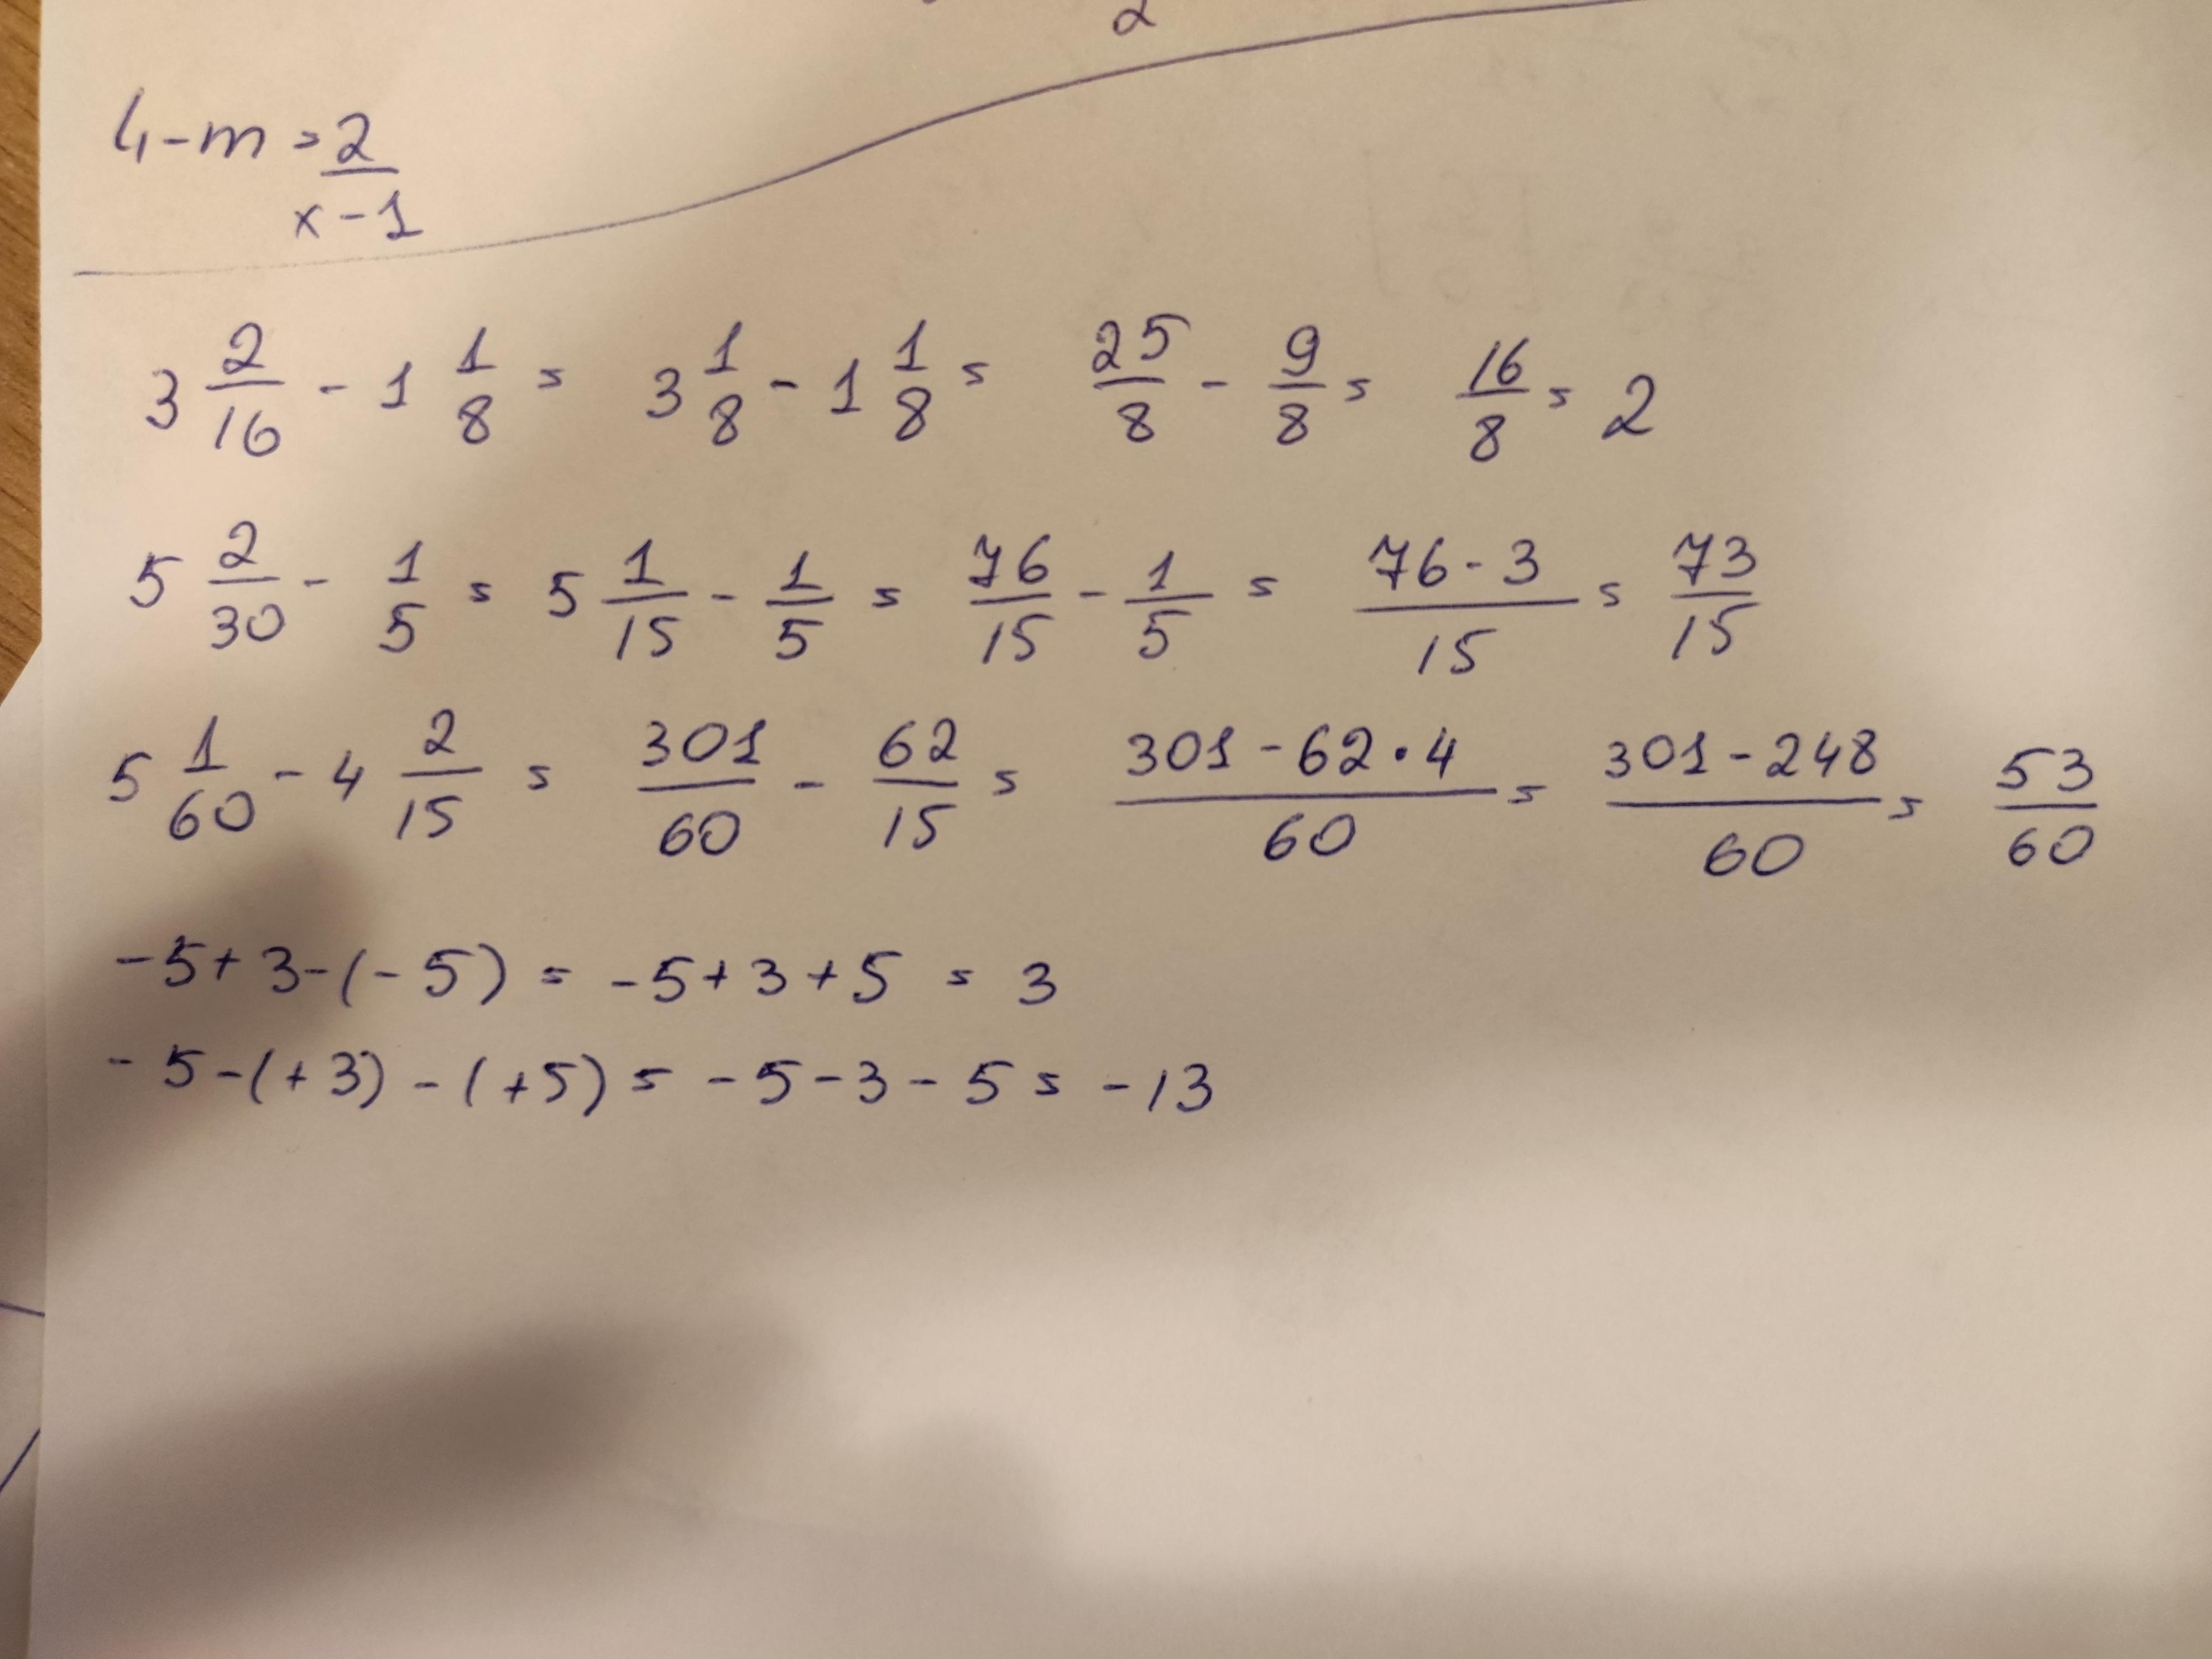 2
4-m = 2/(x-1)
3 2/16 - 1 1/8 = 3 1/8 - 1 1/8 = 25/8 - 9/8 = 16/8 = 2
5 2/30 - 1/5 = 5 1/15 - 1/5 = 76/15 - 1/5 = (76-3)/15 = 73/15
5 1/60 - 4 2/15 = 301/60 - 62/15 = (301-62·4)/60 = (301-248)/60 = 53/60
-5+3-(-5) = -5+3+5 = 3
-5-(+3)-(+5) = -5-3-5 = -13